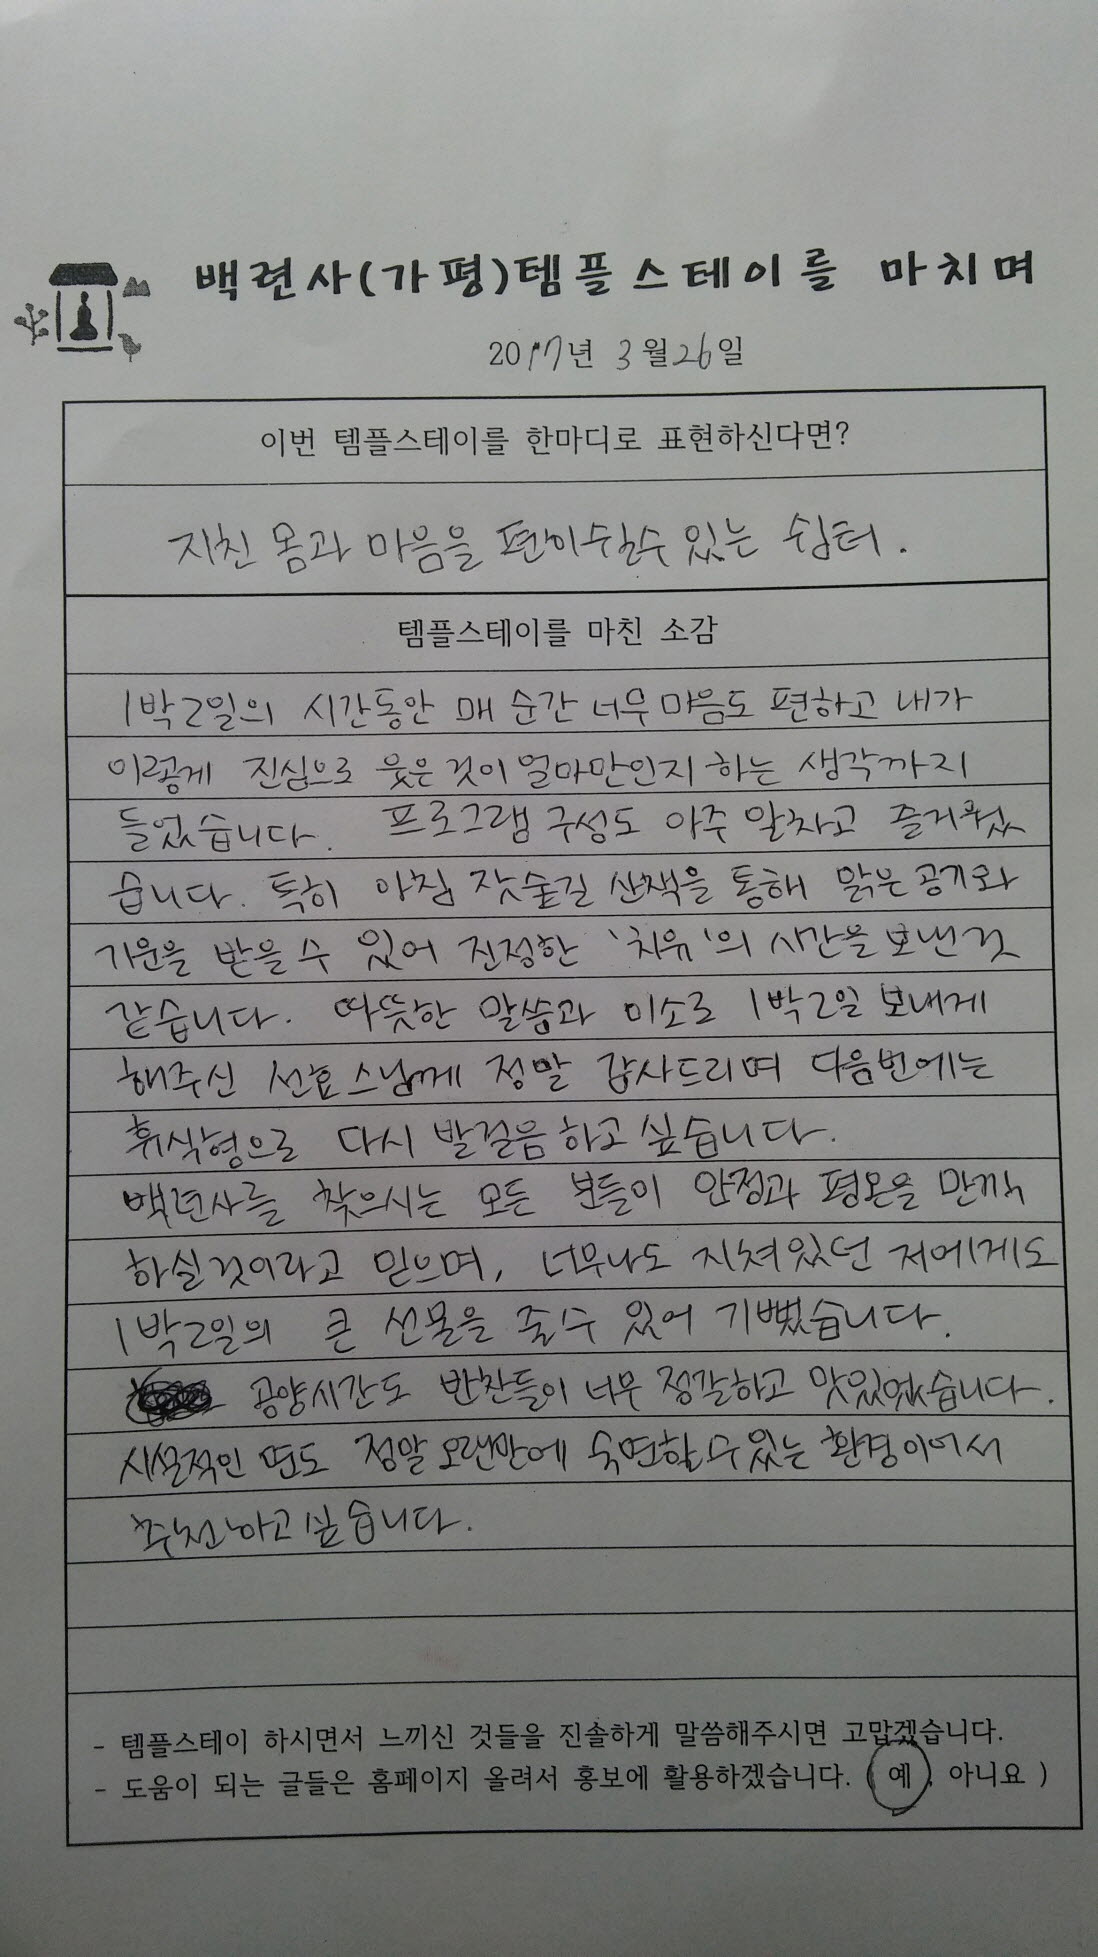 백련사(가평)템플스테이를 마치며
2017년 3월 26일
이번 템플스테이를 한마디로 표현하신다면?
지친 몸과 마음을 편이쉴수 있는 쉼터.
템플스테이를 마친 소감
1박2일의 시간동안 매 순간 너무 마음도 편하고 내가
이렇게 진심으로 웃은 것이 얼마만인지 하는 생각까지
들었습니다. 프로그램 구성도 아주 알차고 즐거웠
습니다. 특히 아침 잣숲길 산책을 통해 맑은 공기와
기운을 받을 수 있어 진정한 '치유'의 시간을 보낸 것
같습니다. 따뜻한 말씀과 미소로 1박2일 보내게
해주신 선효스님께 정말 감사드리며 다음번에는
휴식형으로 다시 발걸음 하고 싶습니다.
백련사를 찾으시는 모든 분들이 안정과 평온을 만끽
하실것이라고 믿으며, 너무나도 지쳐있던 저에게도
1박2일의 큰 선물을 줄 수 있어 기뻤습니다.
공양시간도 반찬들이 너무 정갈하고 맛있었습니다.
시설적인 면도 정말 오랜만에 숙면할 수 있는 환경이어서
추천하고 싶습니다.
- 템플스테이 하시면서 느끼신 것들을 진솔하게 말씀해주시면 고맙겠습니다.
- 도움이 되는 글들은 홈페이지 올려서 홍보에 활용하겠습니다. ( 예 , 아니요 )